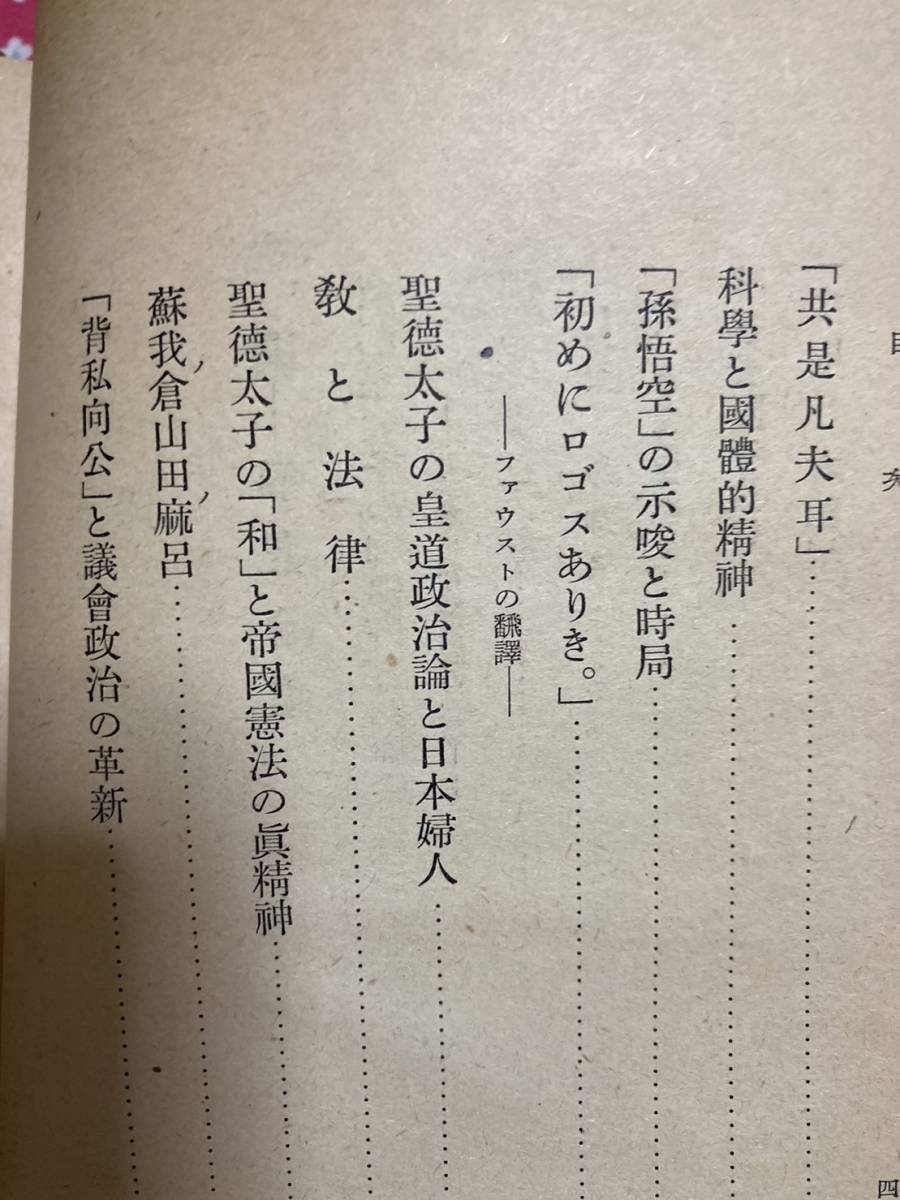 目次
「共是凡夫耳」
科學と國體的精神
「孫悟空」の示唆と時局
「初めにロゴスありき。」
――ファウストの飜譯――
聖德太子の皇道政治論と日本婦人
敎と法律
聖德太子の「和」と帝國憲法の眞精神
蘇我倉山田麻呂
「背私向公」と議會政治の革新
四